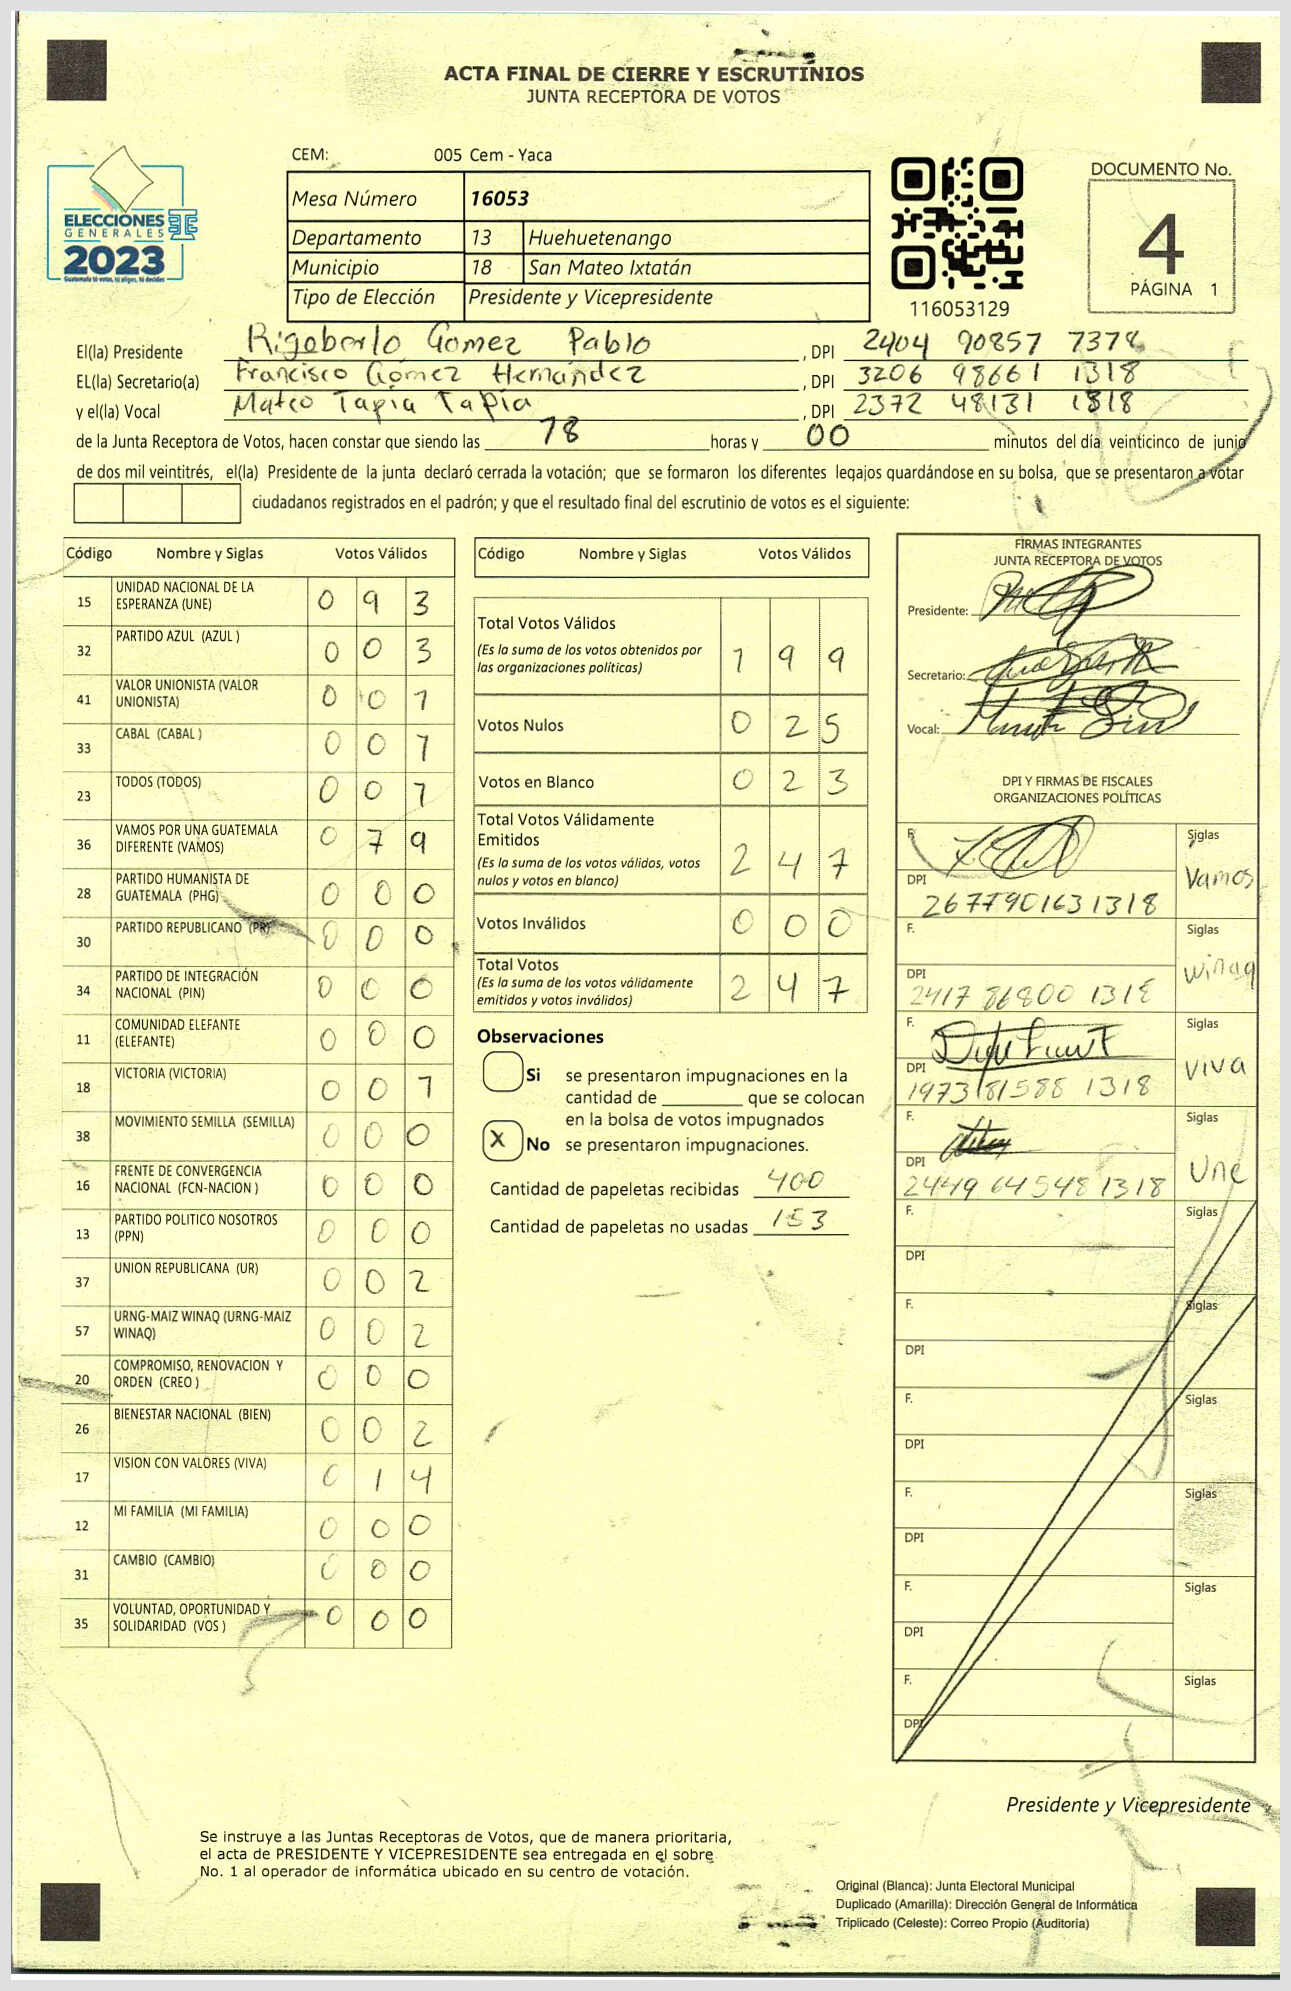 ACTA FINAL DE CIERRE Y ESCRUTINIOS
JUNTA RECEPTORA DE VOTOS
CEM: 005 Cem - Yaca
Mesa Número 16053
Departamento 13 Huehuetenango
Municipio 18 San Mateo Ixtatán
Tipo de Elección Presidente y Vicepresidente
ELECCIONES
GENERALES
2023
Guatemala tú votas, tú eliges, tú decides
116053129
DOCUMENTO No.
4
PÁGINA 1
El(la) Presidente Rigoberto Gomez Pablo , DPI 2404 90857 1318
EL(la) Secretario(a) Francisco Gómez Hernández , DPI 3206 98661 1318
y el(la) Vocal Mateo Tapia Tapia , DPI 2372 48131 1318
de la Junta Receptora de Votos, hacen constar que siendo las 18 horas y 00 minutos del día veinticinco de junio
de dos mil veintitrés, el(la) Presidente de la junta declaró cerrada la votación; que se formaron los diferentes legajos guardándose en su bolsa, que se presentaron a votar
ciudadanos registrados en el padrón; y que el resultado final del escrutinio de votos es el siguiente:
Código Nombre y Siglas Votos Válidos
15 UNIDAD NACIONAL DE LA ESPERANZA (UNE) 0 9 3
32 PARTIDO AZUL (AZUL ) 0 0 3
41 VALOR UNIONISTA (VALOR UNIONISTA) 0 0 1
33 CABAL (CABAL ) 0 0 1
23 TODOS (TODOS) 0 0 1
36 VAMOS POR UNA GUATEMALA DIFERENTE (VAMOS) 0 7 9
28 PARTIDO HUMANISTA DE GUATEMALA (PHG) 0 0 0
30 PARTIDO REPUBLICANO (PR) 0 0 0
34 PARTIDO DE INTEGRACIÓN NACIONAL (PIN) 0 0 0
11 COMUNIDAD ELEFANTE (ELEFANTE) 0 0 0
18 VICTORIA (VICTORIA) 0 0 1
38 MOVIMIENTO SEMILLA (SEMILLA) 0 0 0
16 FRENTE DE CONVERGENCIA NACIONAL (FCN-NACION ) 0 0 0
13 PARTIDO POLITICO NOSOTROS (PPN) 0 0 0
37 UNION REPUBLICANA (UR) 0 0 2
57 URNG-MAIZ WINAQ (URNG-MAIZ WINAQ) 0 0 2
20 COMPROMISO, RENOVACION Y ORDEN (CREO ) 0 0 0
26 BIENESTAR NACIONAL (BIEN) 0 0 2
17 VISION CON VALORES (VIVA) 0 1 4
12 MI FAMILIA (MI FAMILIA) 0 0 0
31 CAMBIO (CAMBIO) 0 0 0
35 VOLUNTAD, OPORTUNIDAD Y SOLIDARIDAD (VOS ) 0 0 0
Código Nombre y Siglas Votos Válidos
Total Votos Válidos 1 9 9
(Es la suma de los votos obtenidos por
las organizaciones políticas)
Votos Nulos 0 2 5
Votos en Blanco 0 2 3
Total Votos Válidamente
Emitidos 2 4 7
(Es la suma de los votos válidos, votos
nulos y votos en blanco)
Votos Inválidos 0 0 0
Total Votos 2 4 7
(Es la suma de los votos válidamente
emitidos y votos inválidos)
Observaciones
Si se presentaron impugnaciones en la
cantidad de ________ que se colocan
en la bolsa de votos impugnados
X No se presentaron impugnaciones.
Cantidad de papeletas recibidas 400
Cantidad de papeletas no usadas 153
FIRMAS INTEGRANTES
JUNTA RECEPTORA DE VOTOS
Presidente:
Secretario:
Vocal:
DPI Y FIRMAS DE FISCALES
ORGANIZACIONES POLÍTICAS
F. Siglas Vamos
DPI 2677901631318
F. Siglas winaq
DPI 2417 86800 1318
F. Siglas viva
DPI 1973 81588 1318
F. Siglas Une
DPI 2449 64548 1318
F. Siglas
DPI
F. Siglas
DPI
F. Siglas
DPI
F. Siglas
DPI
F. Siglas
DPI
F. Siglas
DPI
Presidente y Vicepresidente
Se instruye a las Juntas Receptoras de Votos, que de manera prioritaria,
el acta de PRESIDENTE Y VICEPRESIDENTE sea entregada en el sobre
No. 1 al operador de informática ubicado en su centro de votación.
Original (Blanca): Junta Electoral Municipal
Duplicado (Amarilla): Dirección General de Informática
Triplicado (Celeste): Correo Propio (Auditoria)